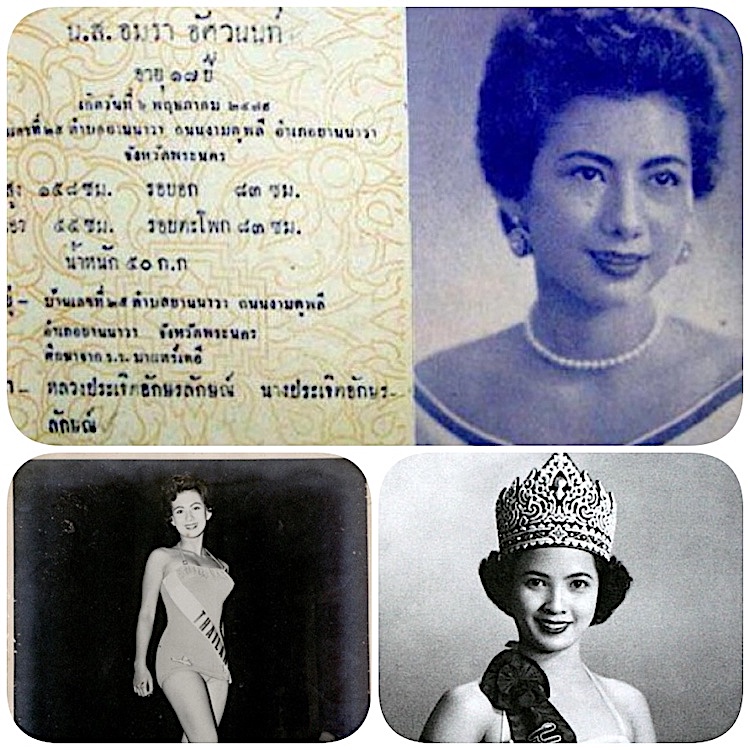 น.ส. อมรา อัศวนนท์
อายุ ๑๗ ปี
เกิดวันที่ ๖ พฤษภาคม ๒๔๗๙
ที่ ๒๕ ตำบลยานนาวา ถนนงามดูพลี อำเภอยานนาวา
จังหวัดพระนคร
สูง ๑๕๘ ซม. รอบอก ๘๓ ซม.
๕๕ ซม. รอบตะโพก ๘๓ ซม.
น้ำหนัก ๕๐ ก.ก
– บ้านเลขที่ ๒๕ ตำบลยานนาวา ถนนงามดูพลี
อำเภอยานนาวา จังหวัดพระนคร
ศึกษาจาก ร.ร. มาแตร์เดอี
– หลวงประเจิดอักษรลักษณ์ นางประเจิดอักษร-
ลักษณ์
THAILAN